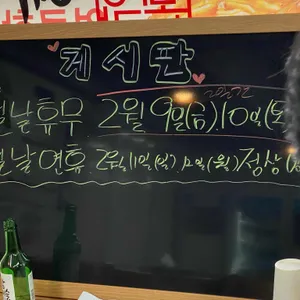 게시판
설날휴무 2월 9일(금), 10일(토
설날연휴 2월 11일(일) 12일(월) 정상